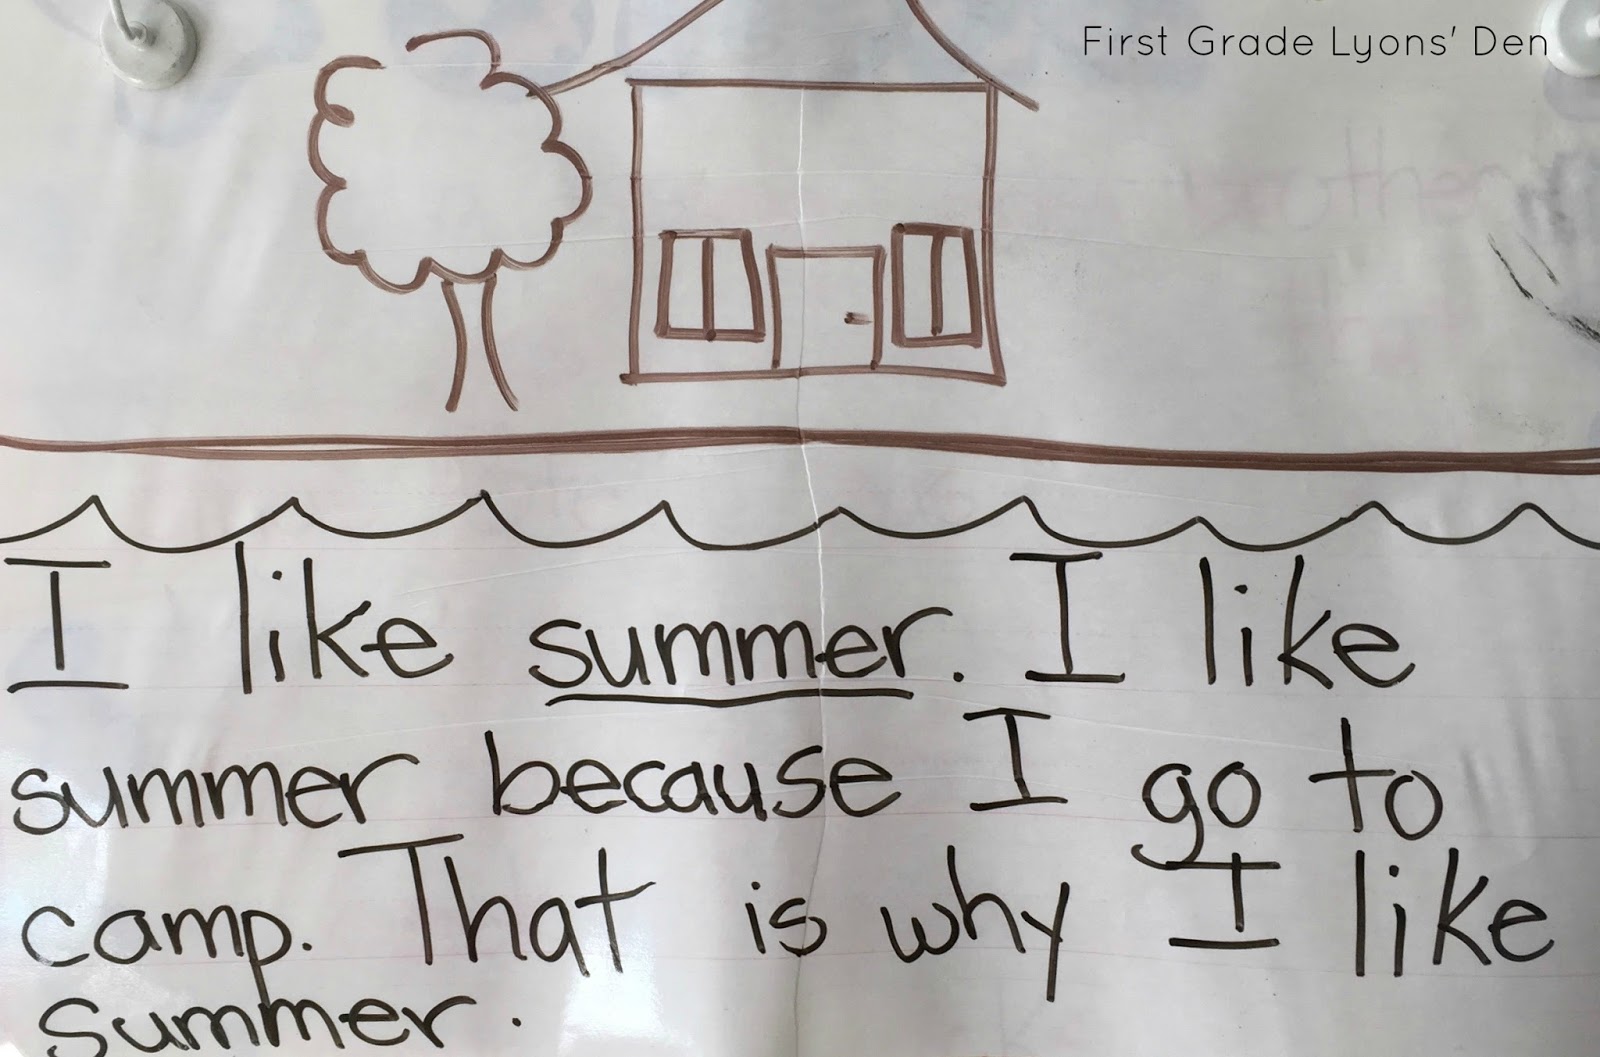 First Grade Lyons' Den
I like summer. I like
summer because I go to
camp. That is why I like
summer.